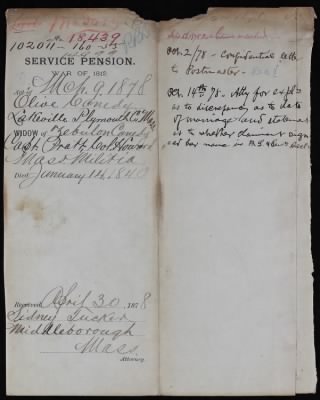 18,439
102011-160-55
SERVICE PENSION.
WAR OF 1812.
Mch 9. 1878
Olive
Lakeville Plymouth Co Mass
WIDOW of Zebulon
Capt Pratt, Col Howard
Mass Militia
Died January 14, 1840
Received April 30, 1878
Sidney Tucker
Middleborough
Mass.
Attorney.
Oct. 2/78 - Confidential letter
to Postmaster -
Oct. 14th 78 - Atty for expl's
as to discrepancy as to date
of marriage and statement
as to whether claimant signed
her name in